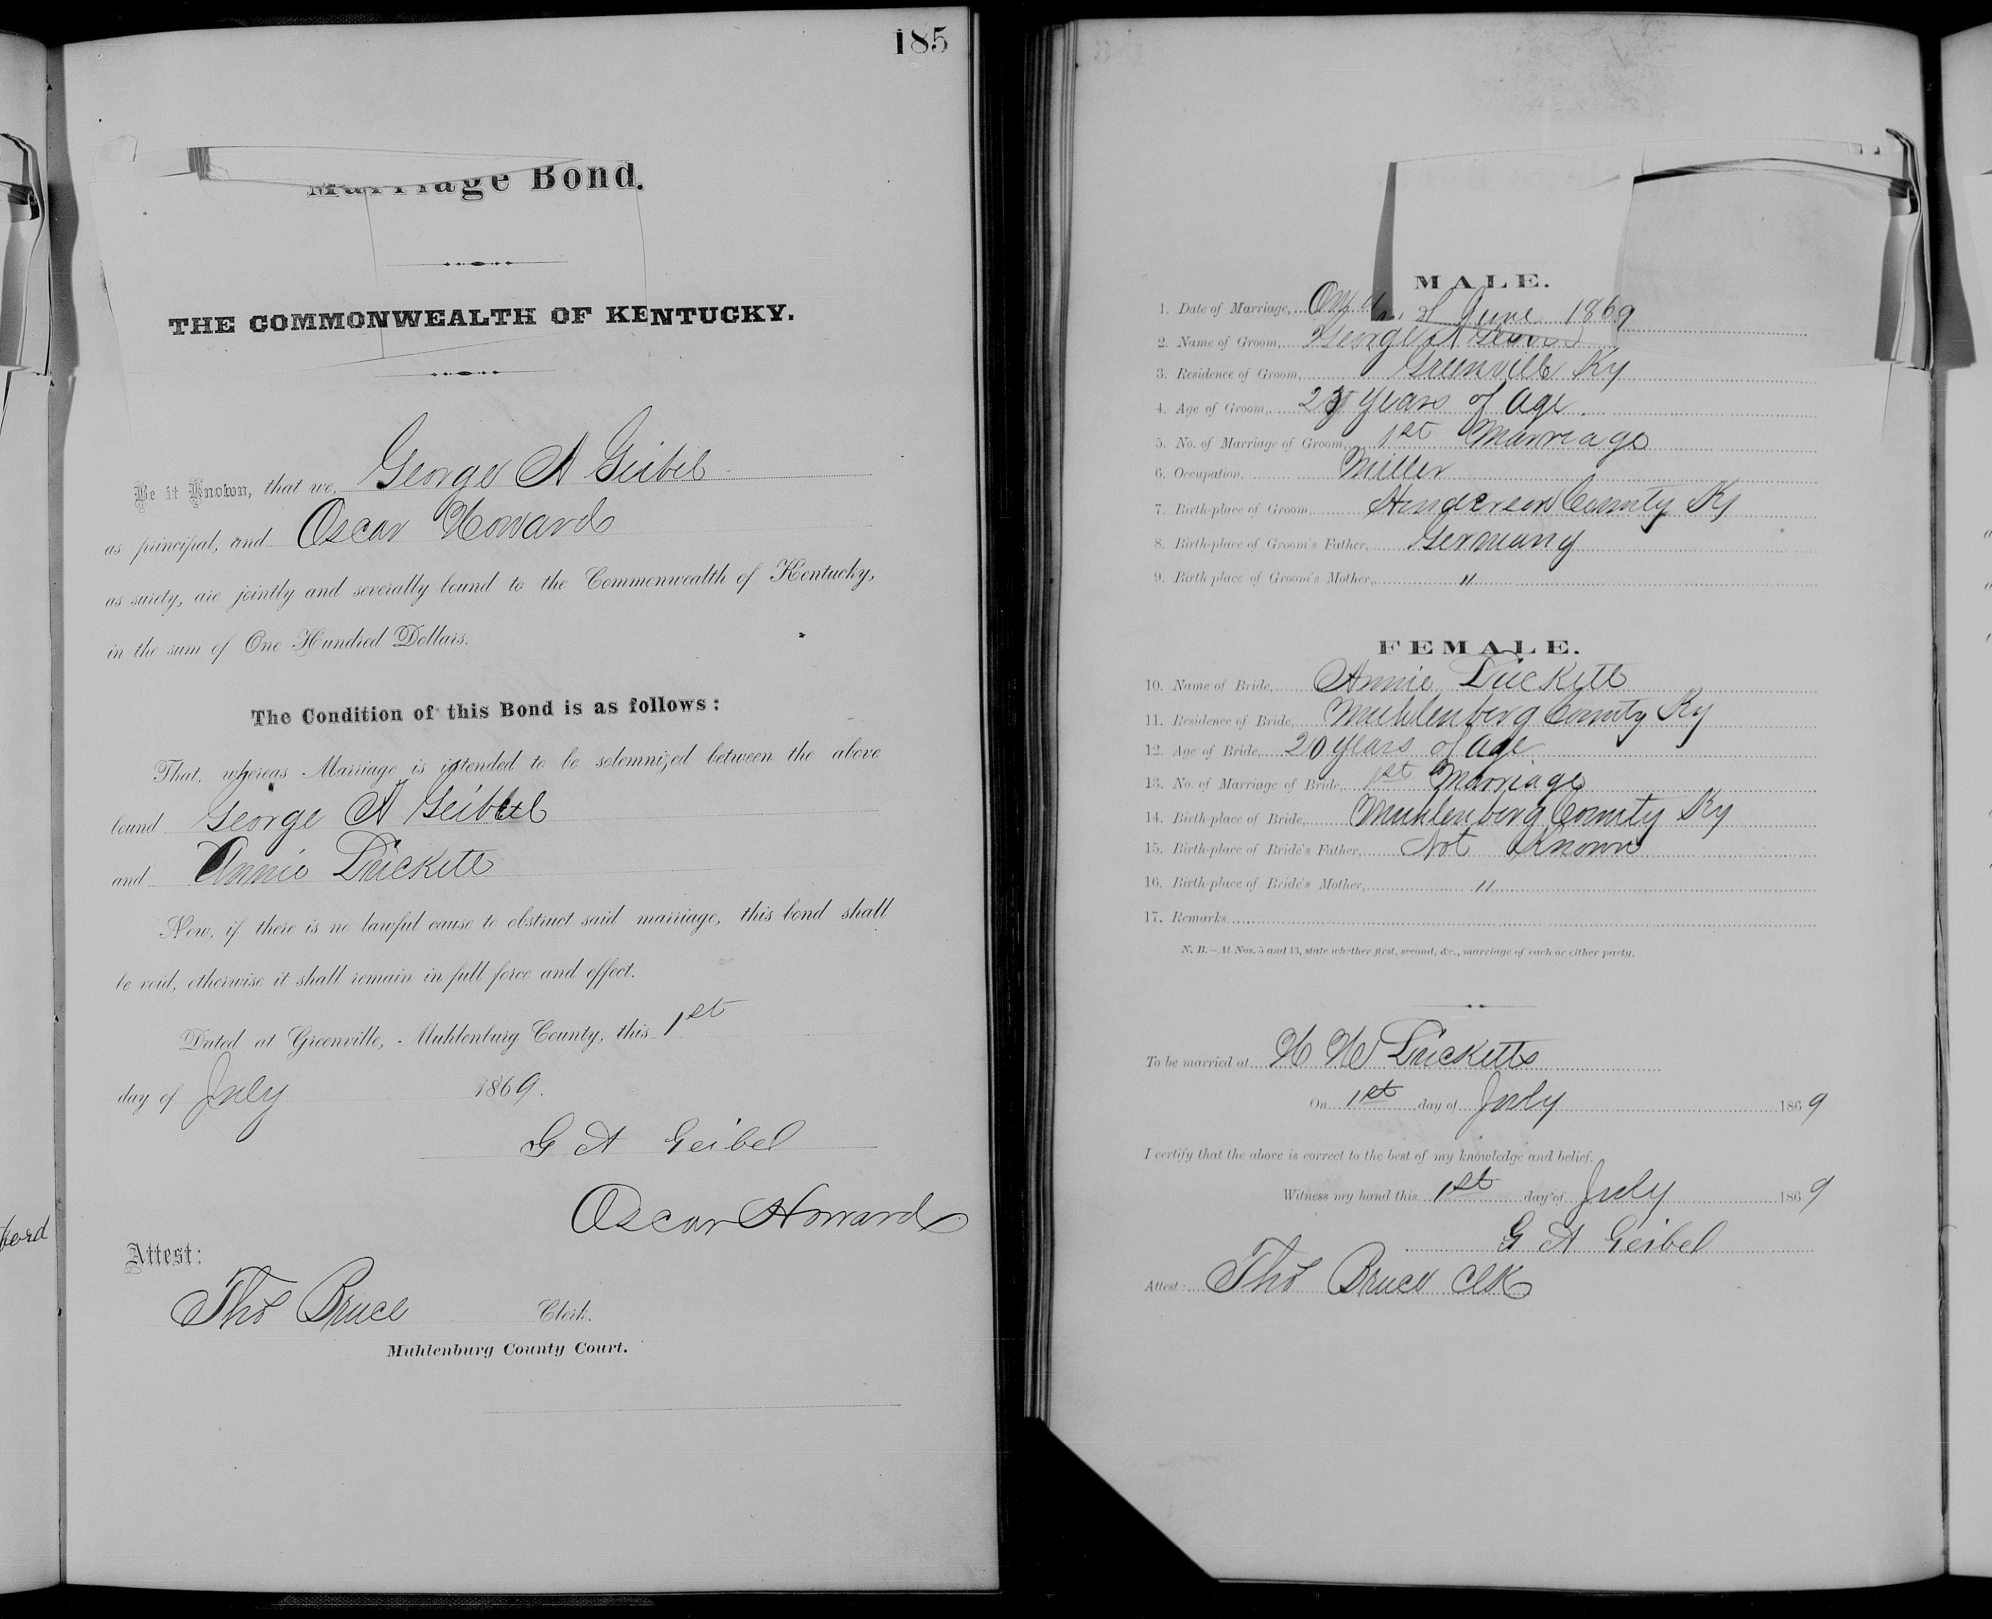 185
Marriage Bond.
THE COMMONWEALTH OF KENTUCKY.
Be it Known, that we, George A Geibel
as principal, and Oscar Howard
as surety, are jointly and severally bound to the Commonwealth of Kentucky,
in the sum of One Hundred Dollars.
The Condition of this Bond is as follows:
That, whereas Marriage is intended to be solemnized between the above
bound George A Geibel
and Annie Duckett
Now, if there is no lawful cause to obstruct said marriage, this bond shall
be void, otherwise it shall remain in full force and effect.
Dated at Greenville, Muhlenburg County, this 1st
day of July 1869.
G A Geibel
Oscar Howard
Attest:
Thos Bruce Clerk.
Muhlenburg County Court.
MALE.
1. Date of Marriage, of June 1869
2. Name of Groom, George A
3. Residence of Groom, Greenville Ky
4. Age of Groom, years of age.
5. No. of Marriage of Groom, 1st Marriage
6. Occupation, Miller
7. Birth-place of Groom, Henderson County Ky
8. Birth-place of Groom's Father, Germany
9. Birth-place of Groom's Mother, "
FEMALE.
10. Name of Bride, Annie Duckett
11. Residence of Bride, Muhlenberg County Ky
12. Age of Bride, 20 years of age
13. No. of Marriage of Bride, 1st Marriage
14. Birth-place of Bride, Muhlenberg County Ky
15. Birth-place of Bride's Father, Not Known
16. Birth-place of Bride's Mother, "
17. Remarks
N. B.—At Nos. 5 and 13, state whether first, second, &c., marriage of each or either party.
To be married at H W Ducketts
On 1st day of July 1869
I certify that the above is correct to the best of my knowledge and belief.
Witness my hand this 1st day of July 1869
G A Geibel
Attest: Thos Bruce Clk